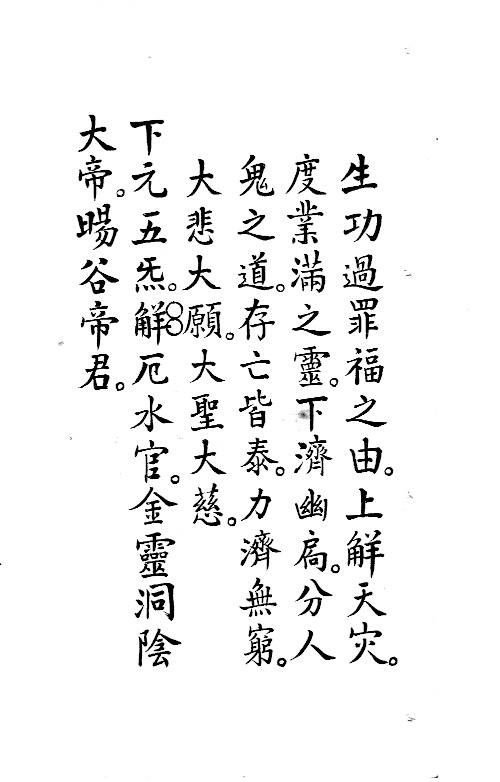 生功過罪福之由。上解天灾。
度業滿之靈。下濟幽扃。分人
鬼之道。存亡皆泰。力濟無窮。
大悲大願。大聖大慈。
下元五炁。解厄水官。金靈洞陰
大帝。暘谷帝君。